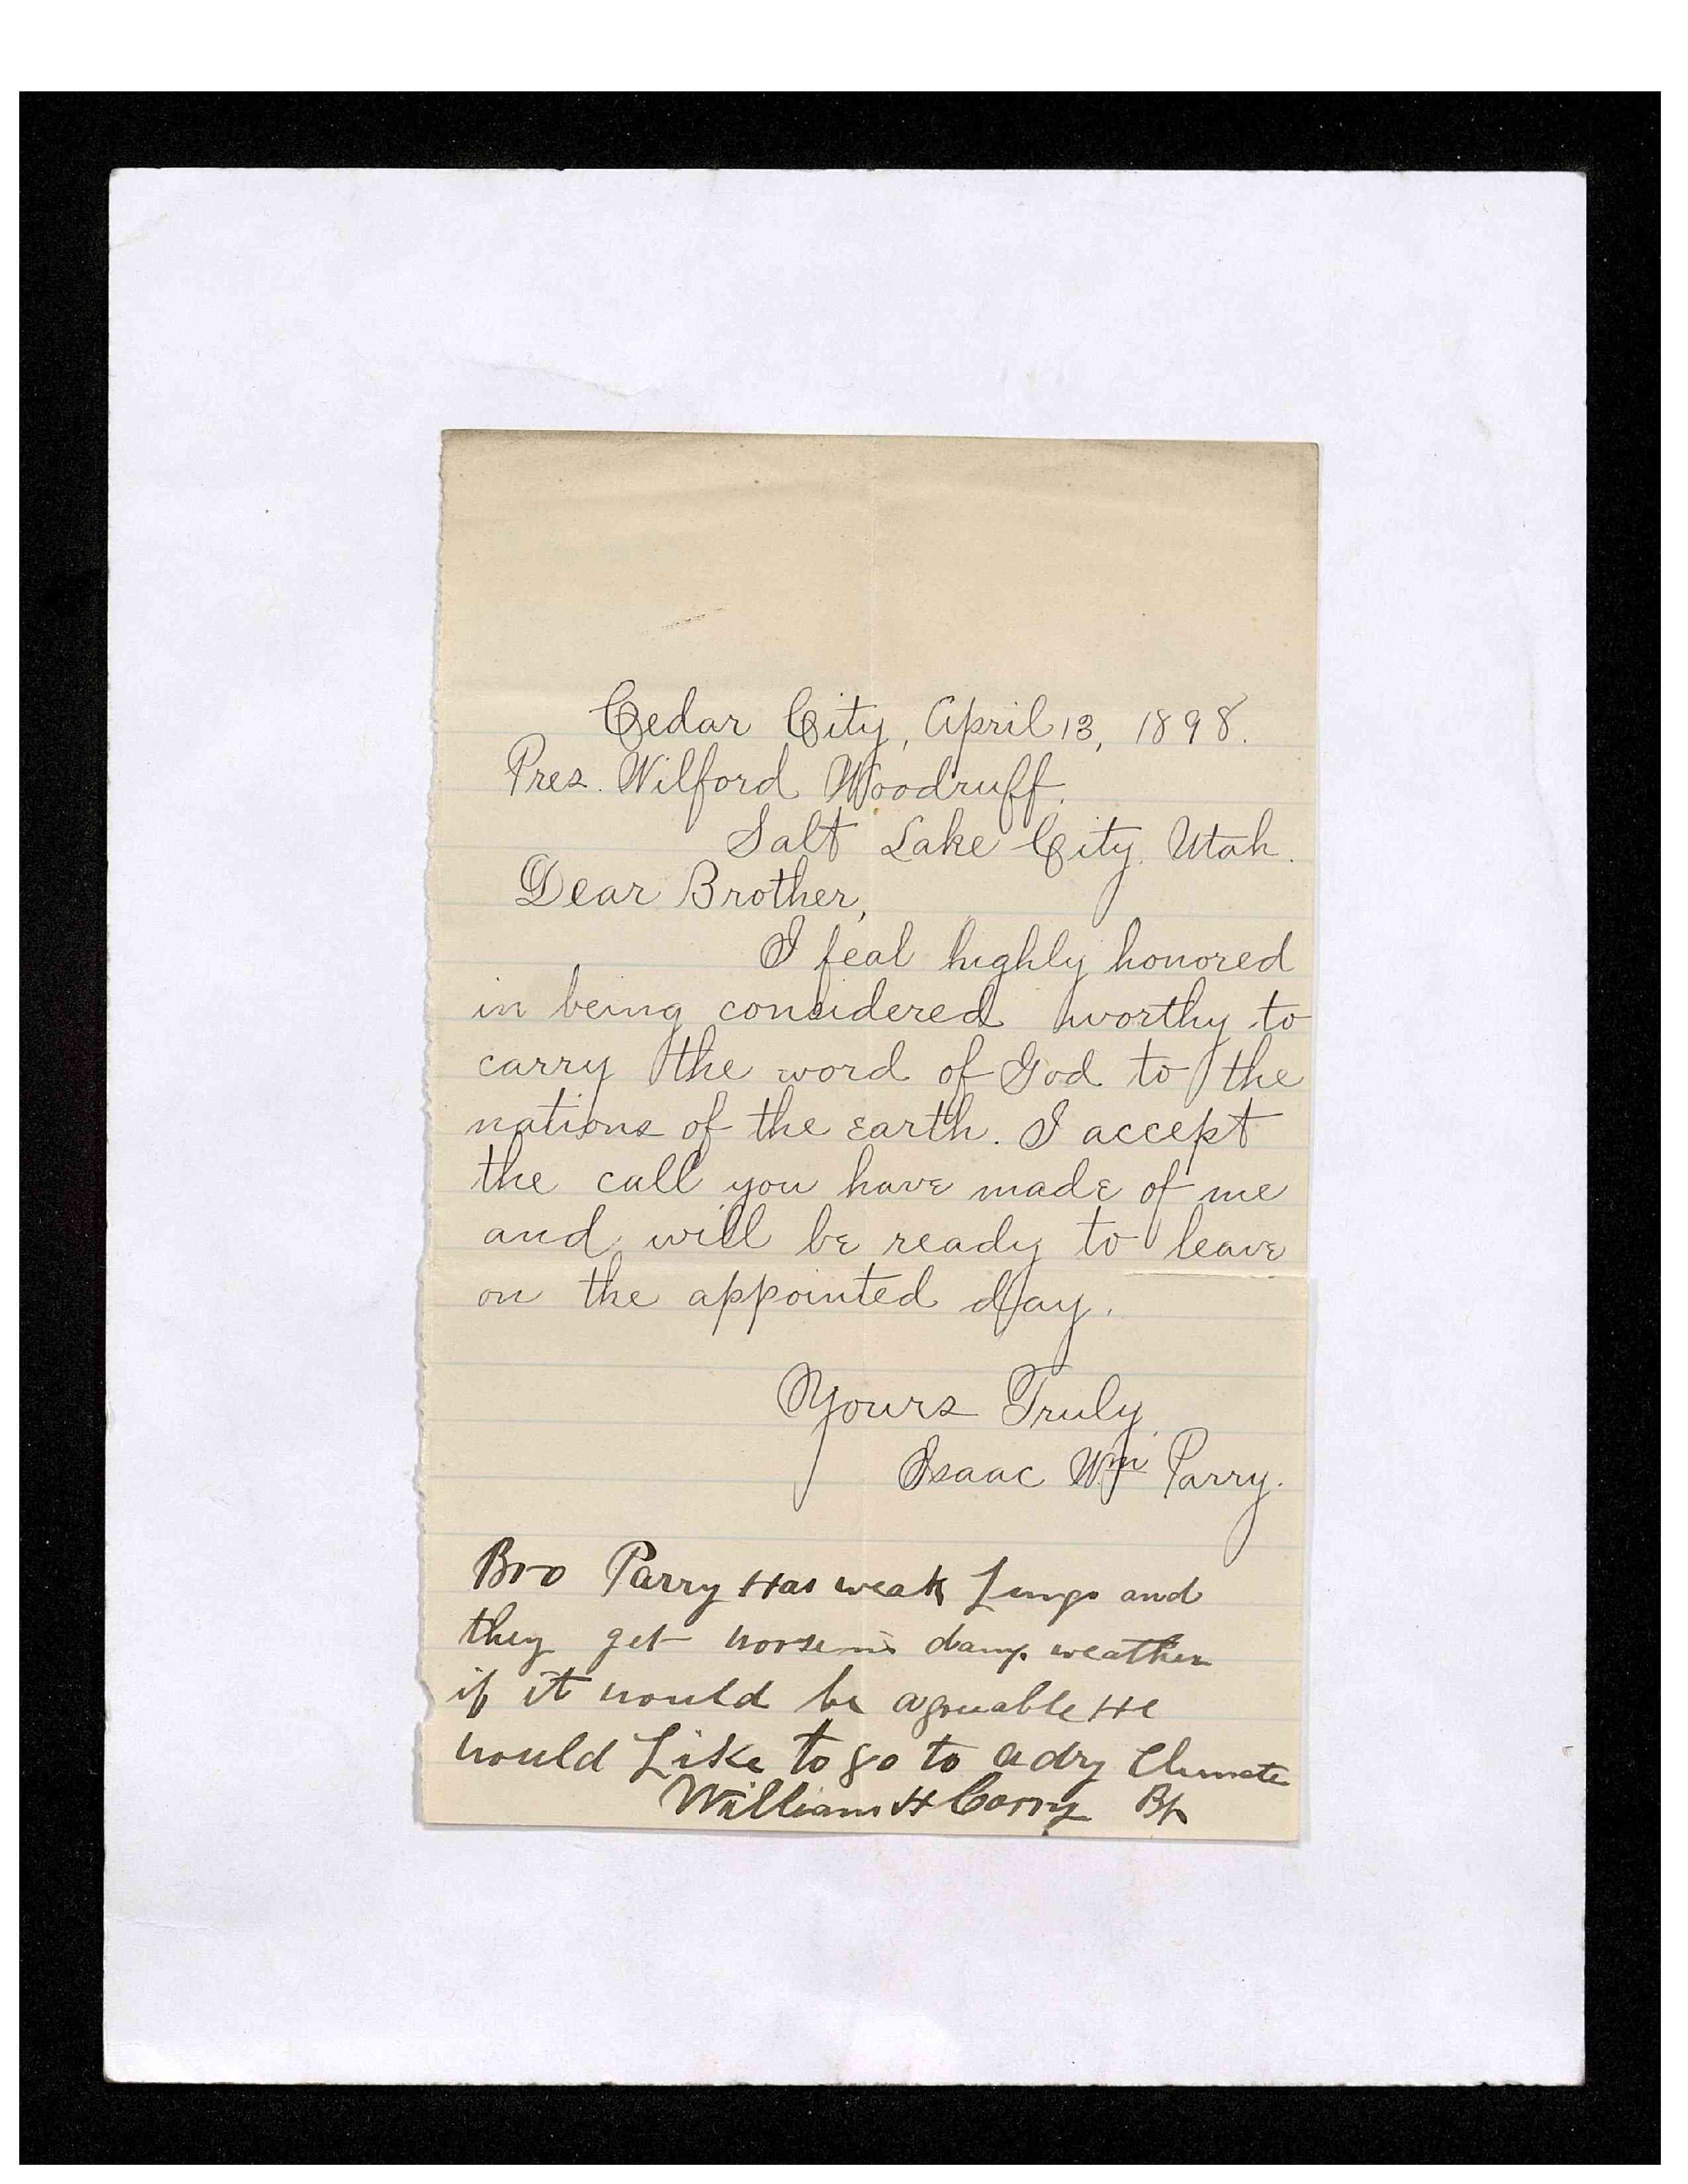 Cedar City, April 13, 1898.
Pres. Wilford Woodruff.
Salt Lake City. Utah.
Dear Brother,
I feal highly honored
in being considered worthy to
carry the word of God to the
nations of the earth. I accept
the call you have made of me
and will be ready to leave
on the appointed day.
Yours Truly,
Isaac Wm Parry.
Bro Parry Has weak Lungs and
they get worse in damp weather
if it would be agreeable He
would Like to go to a dry Climate
William H Corry Bp